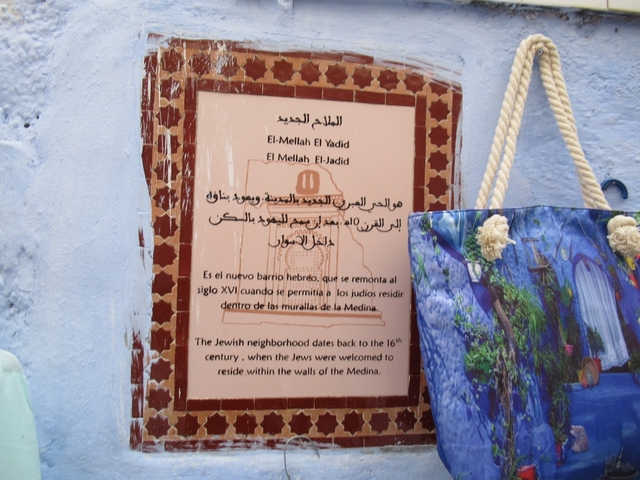 الملاح الجديد
El-Mellah El Yadid
El Mellah El-Jadid
هو الحي العبري الجديد بالمدينة، ويعود بناؤه
إلى القرن 15م، بعد أن سمح لليهود بالسكن
داخل الأسوار
Es el nuevo barrio hebreo, que se remonta al
siglo XVI cuando se permitía a los judíos residir
dentro de las murallas de la Medina.
The Jewish neighborhood dates back to the 16th
century , when the Jews were welcomed to
reside within the walls of the Medina.